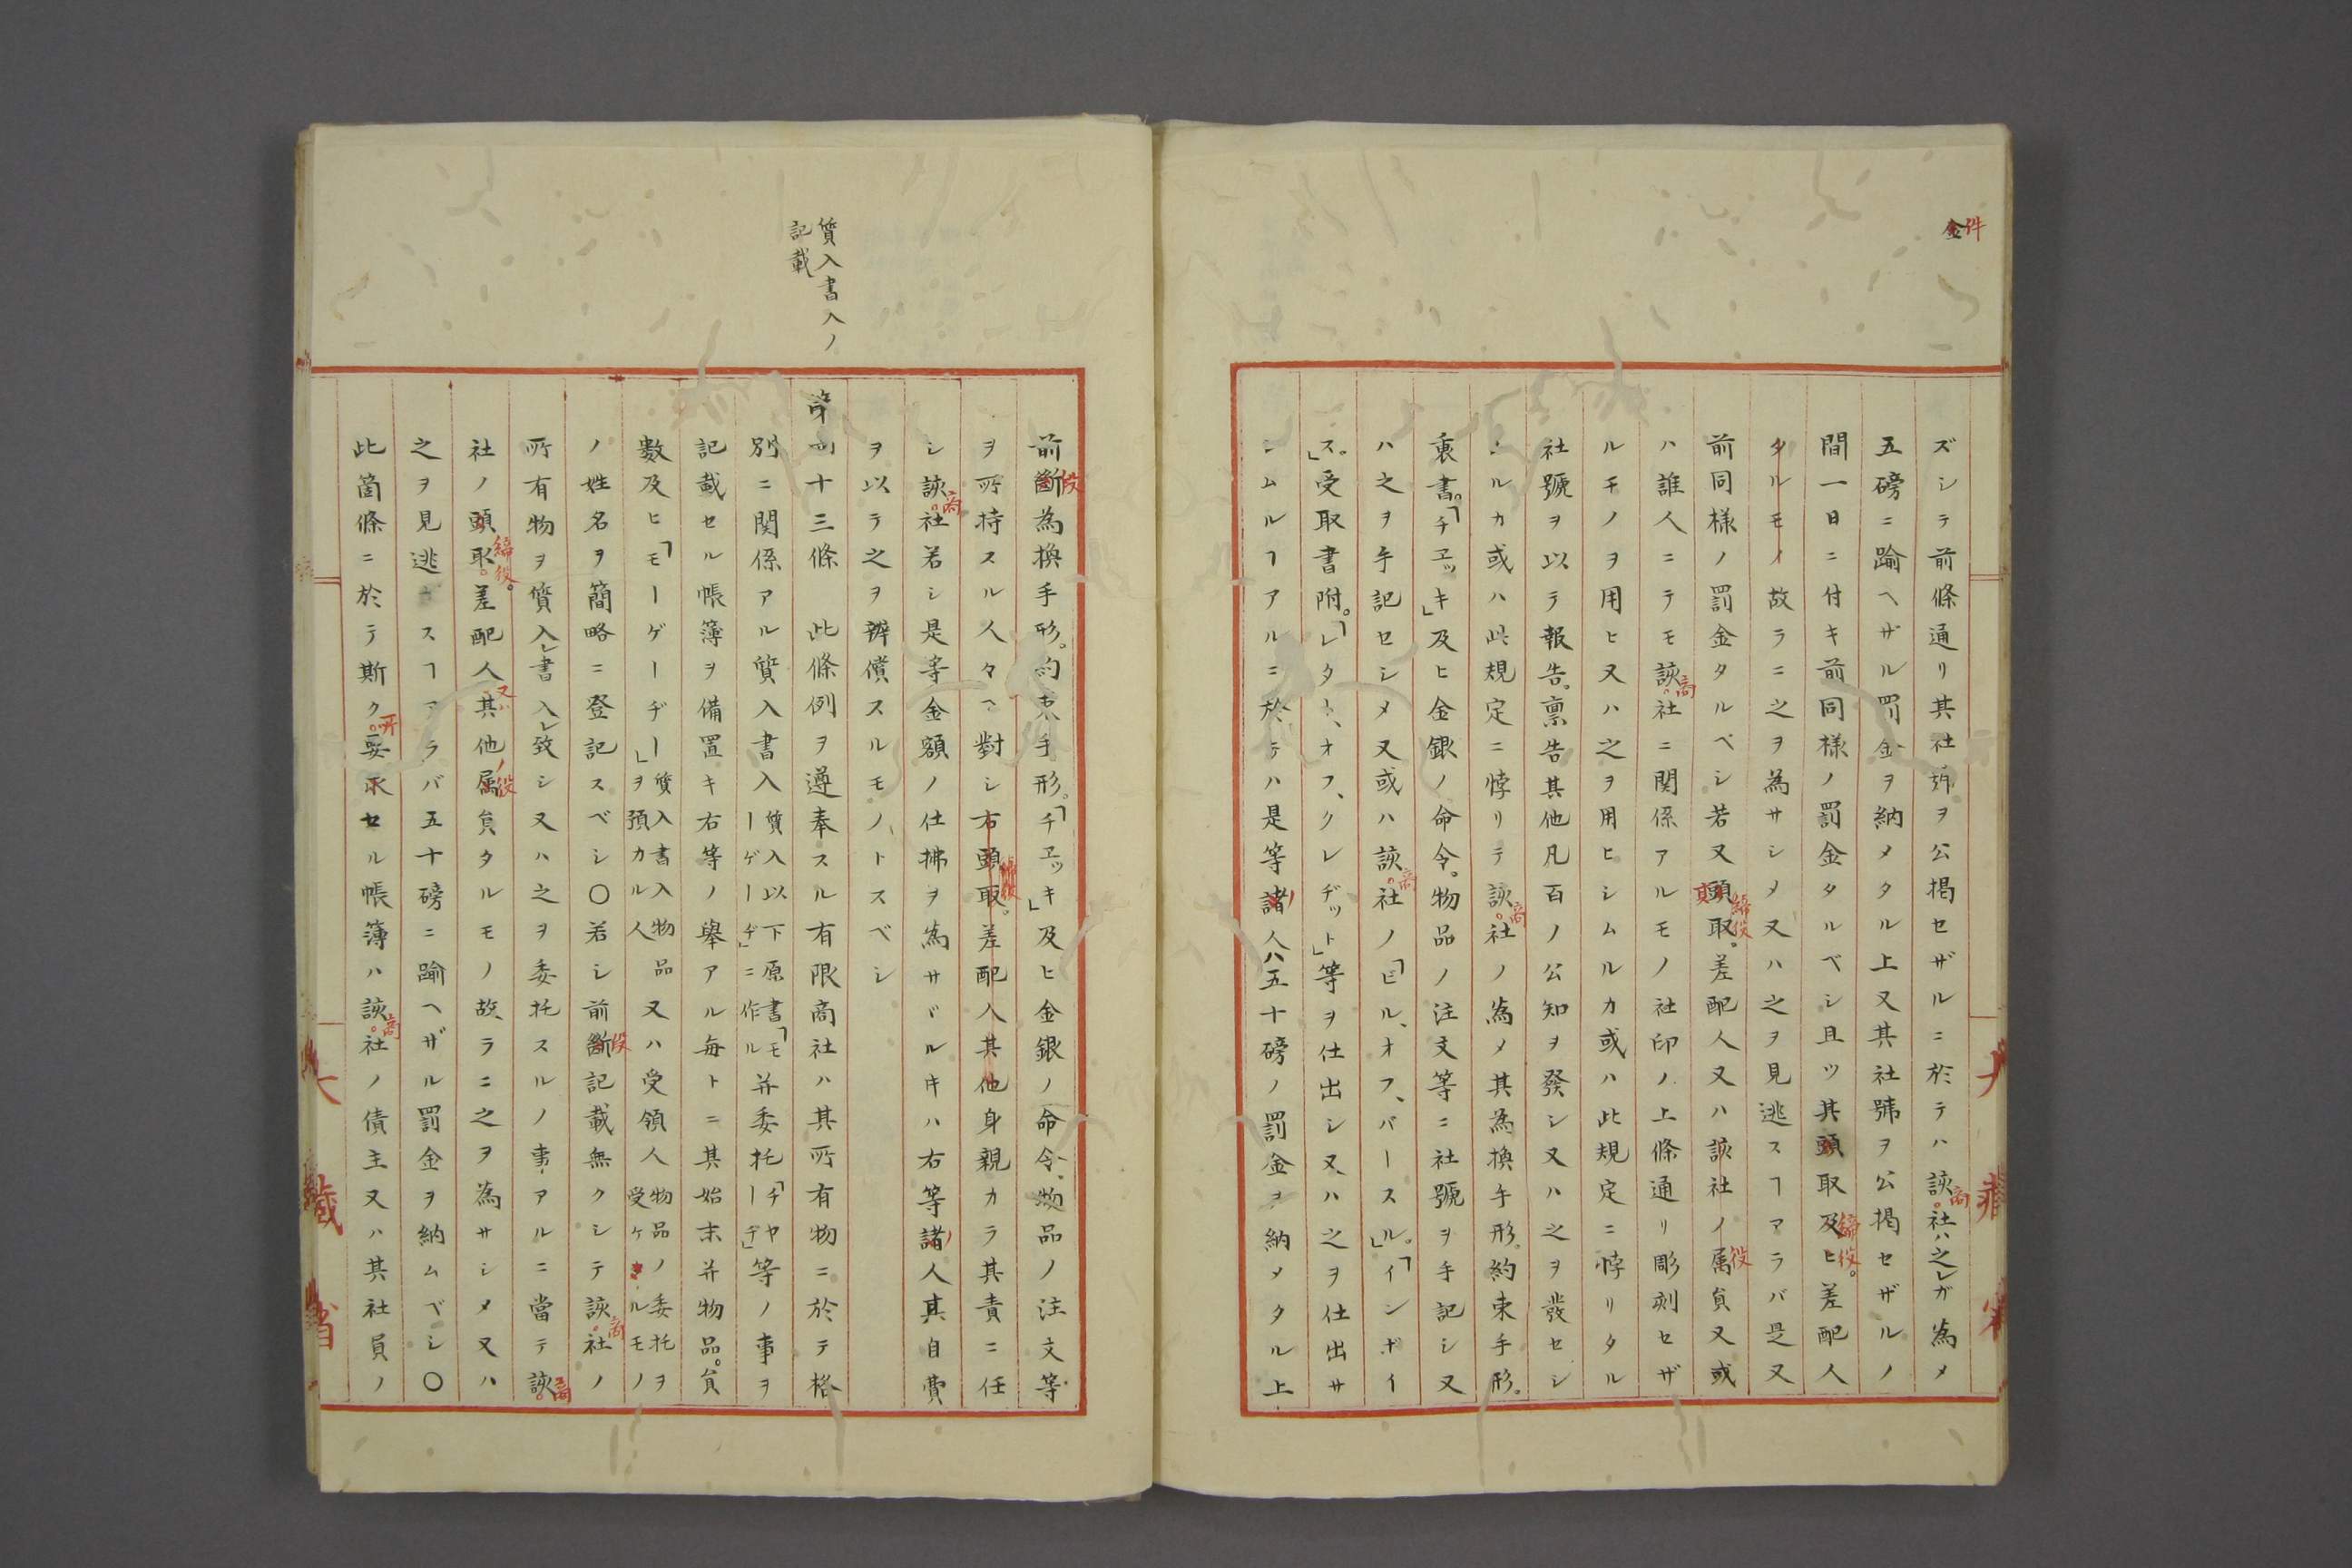 件
金
ズシテ前條通リ其社號ヲ公掲セザルニ於テハ該社ハ之レガ為メ
商
五磅ニ踰ヘザル罰金ヲ納メタル上又其社號ヲ公掲セザルノ
間一日ニ付キ前同様ノ罰金タルベシ且ツ其頭取及ヒ差配人
締役
タルモノ故ラニ之ヲ為サシメ又ハ之ヲ見逃スヿアラバ是又
前同様ノ罰金タルベシ若又頭取差配人又ハ該社ノ属負又或
締役
役
ハ誰人ニテモ該社ニ関係アルモノ社印ノ上條通リ彫刻セザ
商
ルモノヲ用ヒ又ハ之ヲ用ヒシムルカ或ハ此規定ニ悖リタル
社號ヲ以テ報告稟告其他凡百ノ公知ヲ發シ又ハ之ヲ發セシ
ムルカ或ハ此規定ニ悖リテ該社ノ為メ其為換手形約束手形
商
裏書「チエッキ」及ヒ金銀ノ命令物品ノ注文等ニ社號ヲ手記シ又
ハ之ヲ手記セシメ又或ハ該社ノ「ビル、オフ、バースル」「インボイ
商
ス」受取書附「レタル、オフ、クレヂット」等ヲ仕出シ又ハ之ヲ仕出サ
シムルヿアルニ於テハ是等諸人ハ五十磅ノ罰金ヲ納メタル上
前斷為換手形約束手形「チエッキ」及ヒ金銀ノ命令物品ノ注文等
段
ヲ所持スル人々ヘ對シ右頭取差配人其他身親カラ其責ニ任
締役
シ該社若シ是等金額ノ仕拂ヲ為サヾルキハ右等諸人其自費
商
ヲ以テ之ヲ辨償スルモノトスベシ
質入書入ノ
記載
第四十三條 此條例ヲ遵奉スル有限商社ハ其所有物ニ於テ格
別ニ関係アル質入書入質入以下原書「モーゲーヂ」ニ作ル并委托「チャーヂ」等ノ事ヲ
記載セル帳簿ヲ備置キ右等ノ舉アル毎トニ其始末并物品負
數及ヒ「モーゲーヂー」質入書入物品ヲ預カル人又ハ受領人物品ノ委托ヲ受ケルモノ
ノ姓名ヲ簡略ニ登記スベシ〇若シ前斷記載無クシテ該社ノ
段
商
所有物ヲ質入レ書入レ致シ又ハ之ヲ委托スルノ事アルニ當テ該
商
社ノ頭取差配人其他属負タルモノ故ラニ之ヲ為サシメ又ハ
締役
又ハ
ノ役
之ヲ見逃ガスヿアラバ五十磅ニ踰ヘザル罰金ヲ納ムベシ〇
此箇條ニ於テ斯ク要求セル帳簿ハ該社ノ債主又ハ其社員ノ
所
商
大
藏
省